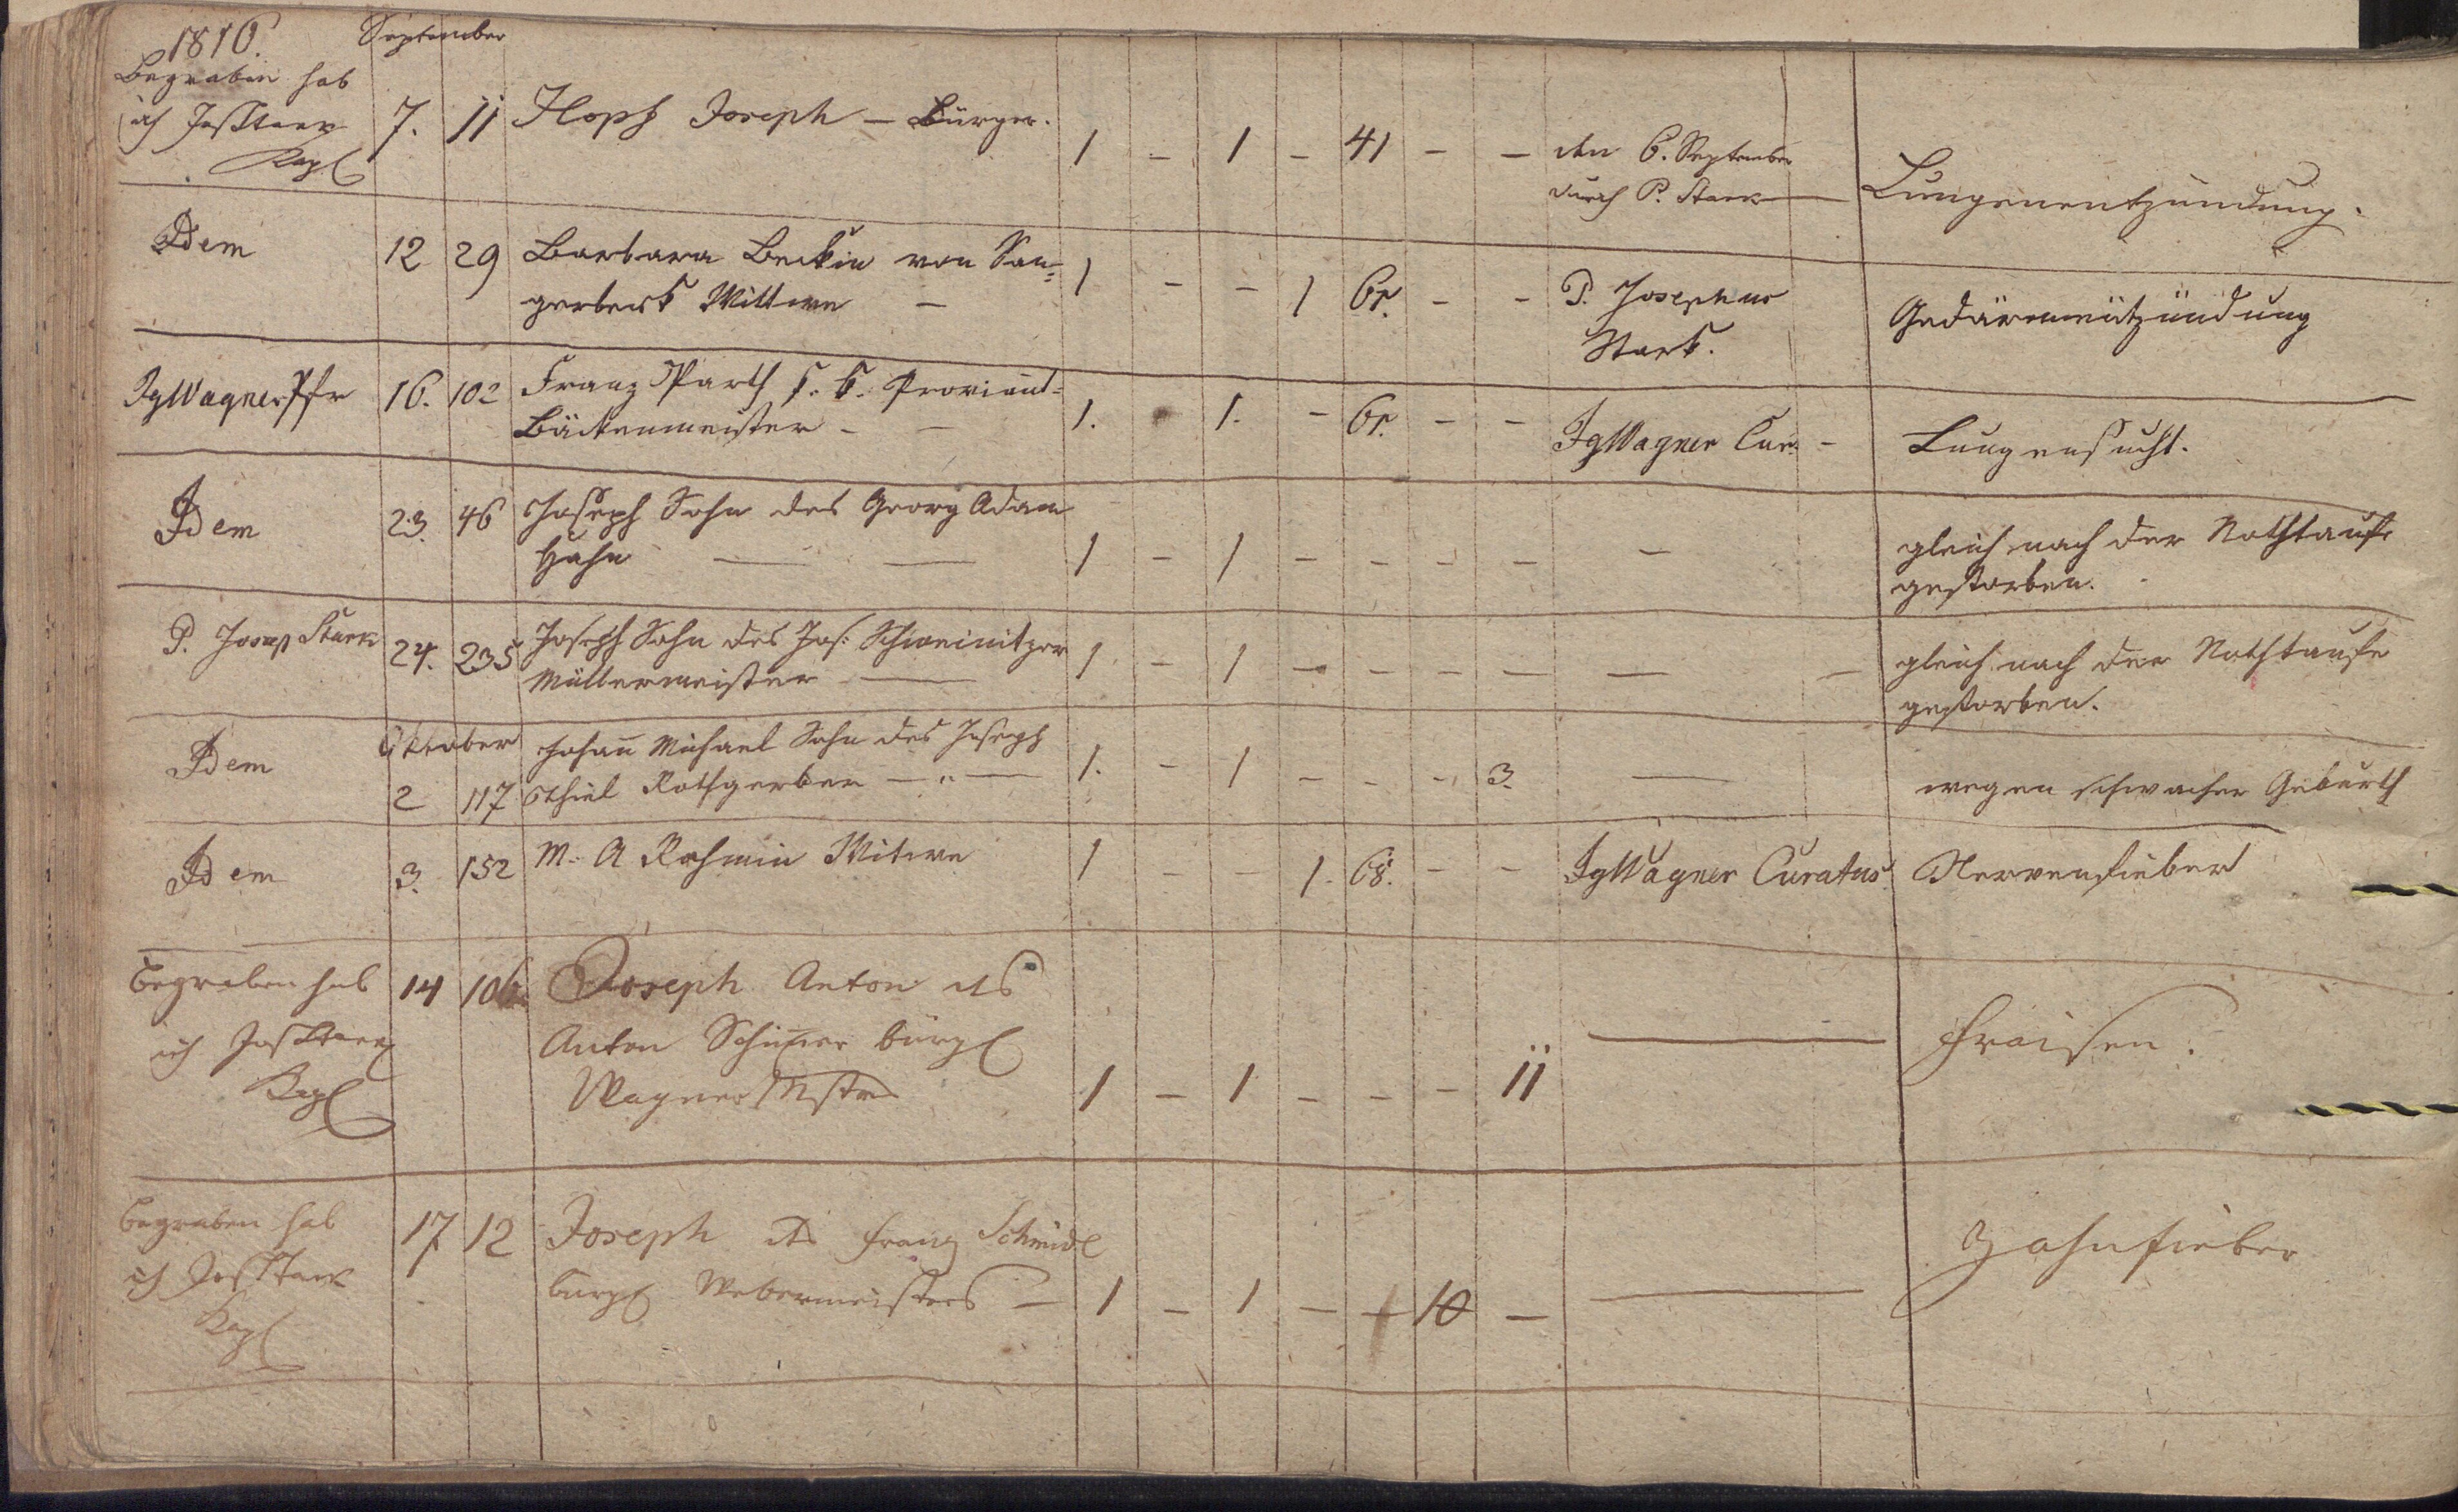 1816. September
Begraben hab
ich Jos Stark
Kapl
7. 11 Hopf Joseph – Bürger. 1 – 1 – 41 – – den 6. September
durch P. Stark Lungenentzündung.
Idem 12 29 Barbara Beckin von San= 1 – – 1 61. – – P. Josephus
gerberk Wittwe – Stark. Gedärmentzündung
IgWagner Pfr 16. 102 Franz Parth k. k. Proviant=
Bäckenmeister – – 1. 1. – 61. – – IgWagner Cur. – Lungensucht.
Idem 23. 46 Joseph Sohn des Georg Adam
Hahn 1 – 1 – – – – – gleich nach der Nothtaufe
gestorben.
P. Joseph Stark 24. 235 Joseph Sohn des Jos: Schweinitzer
Müllermeister 1 – 1 – – – – – – gleich nach der Nothtaufe
gestorben.
Oktober
Idem Johann Michael Sohn des Joseph
2 117 Thiel Rothgerber – " – 1. – 1 – – – 3. – wegen schwacher Geburth
Idem 3. 152 M. A Wittwe 1 – – 1. 68. – – IgWagner Curatus. Nervenfieber
Begraben hab 14 106 Joseph Anton des
ich Jos Stark Anton bürgl
Kapl Wagner Mstrs 1 – 1 – – – 11 – Fraisen.
Begraben hab 17 12 Joseph des Franz Schmidl
ich Jos Stark bürgl Webermeisters – 1 – 1 – – 10 – – Zahnfieber
Kapl